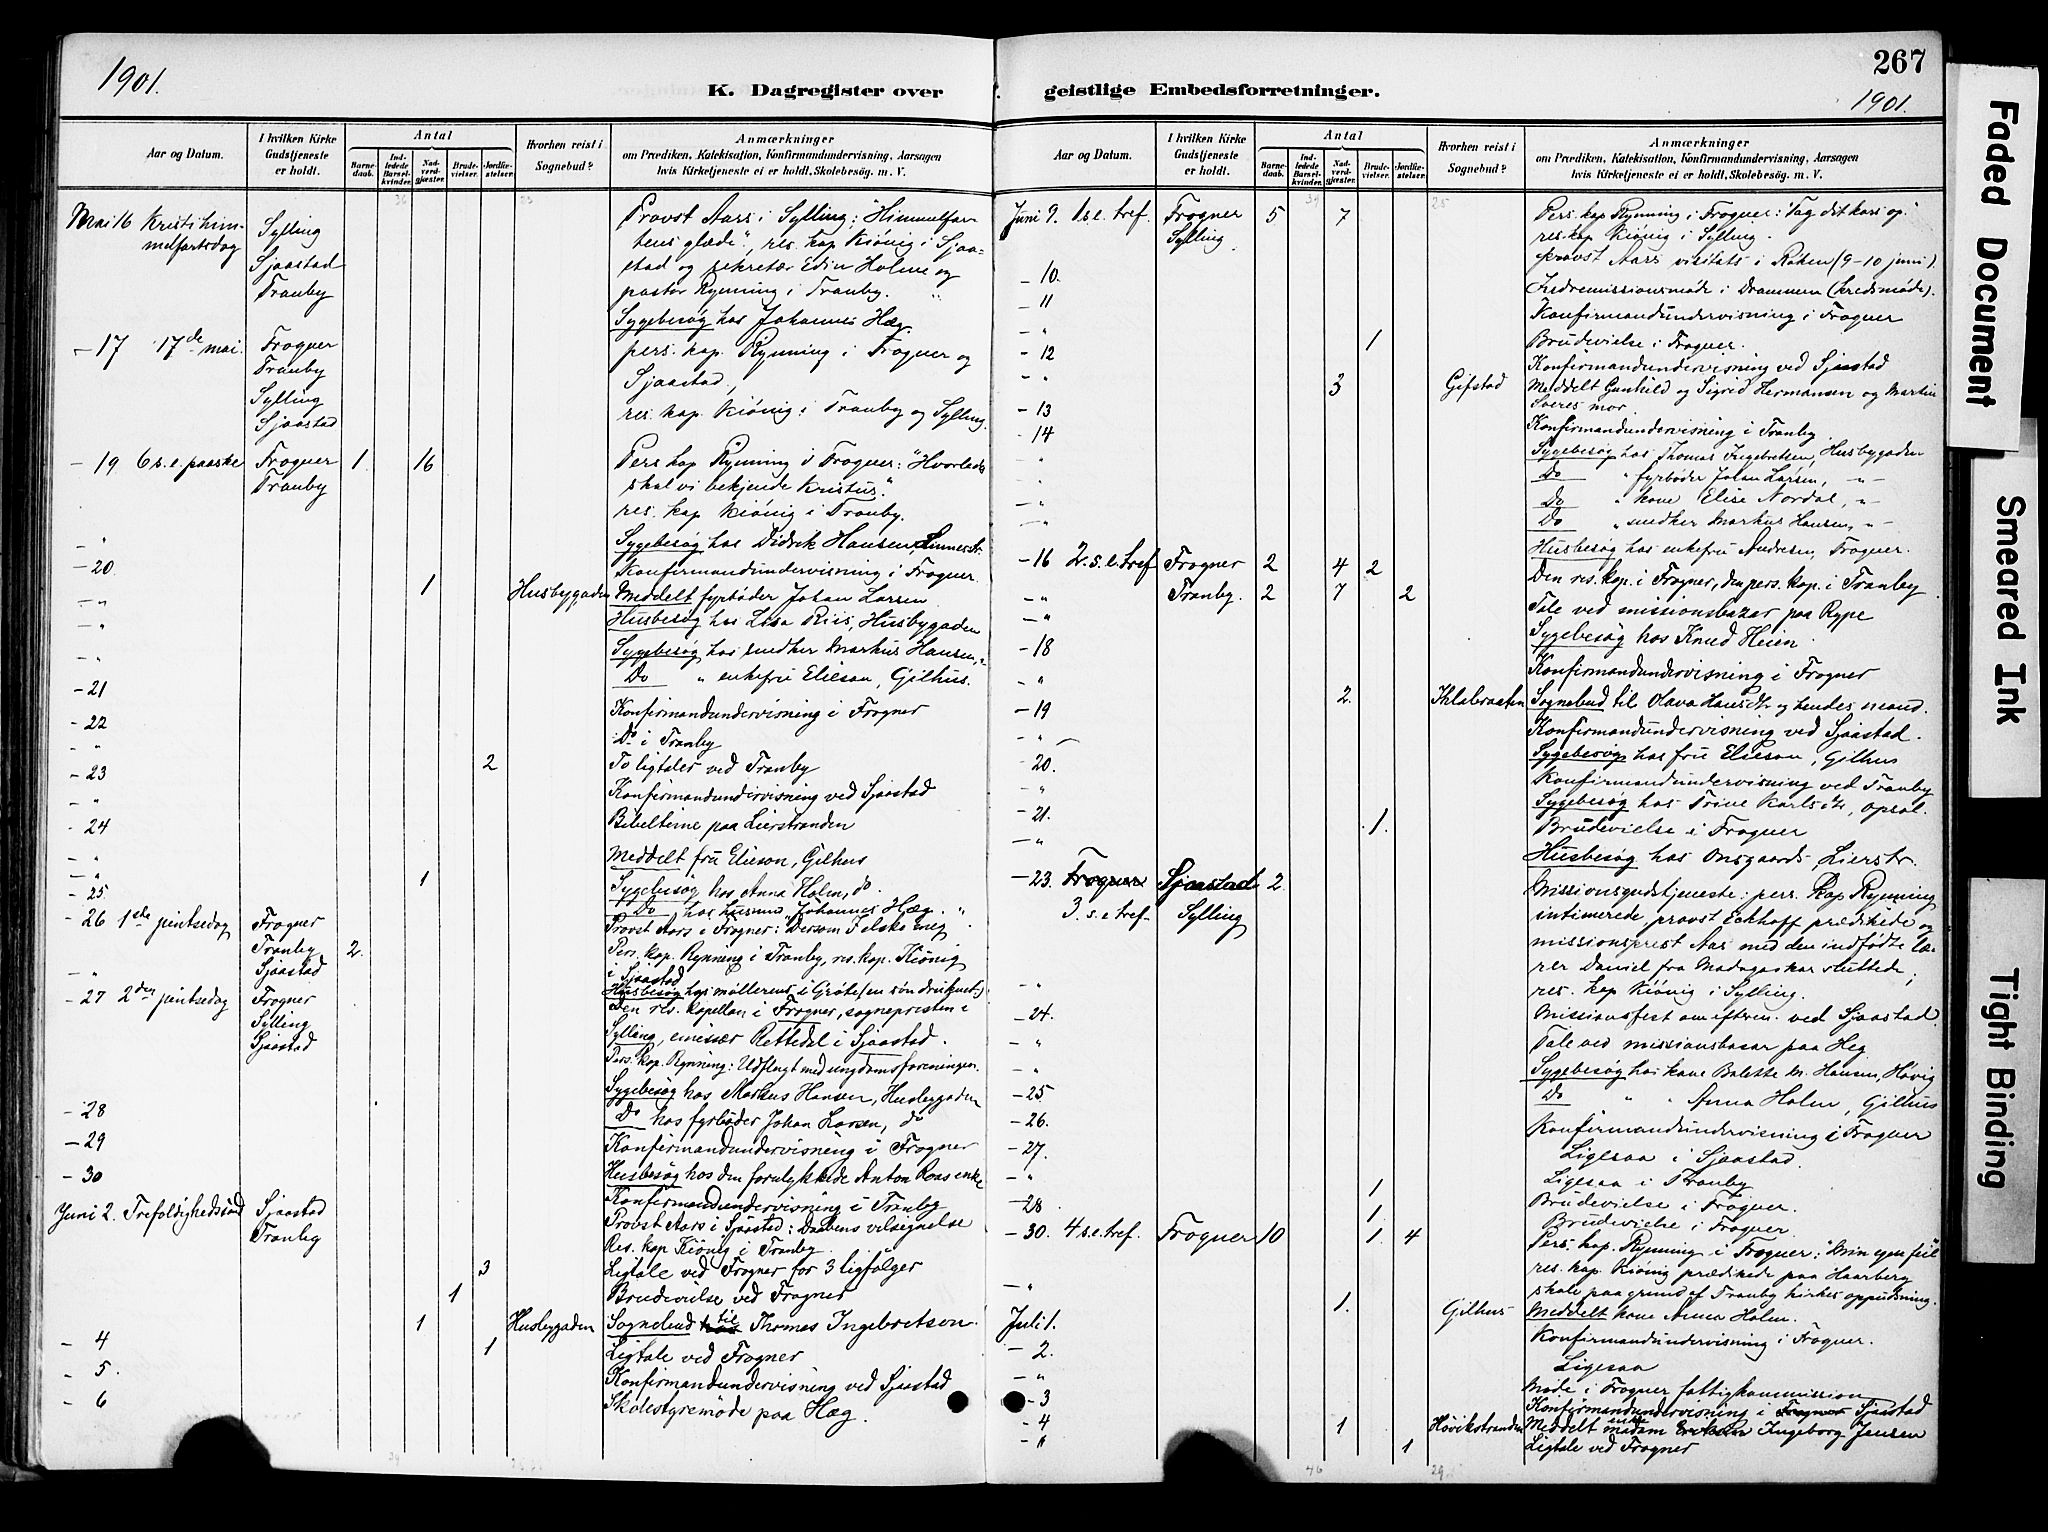 1901.
K. Dagregister over
Aar og Datum.
I hvilken Kirke Gudstjeneste er holdt.
Antal
Barnedaab.
Indledede Barselkvinder.
Nadverdgjæster.
Brudevielser.
Jordfæstelser.
Hvorhen reist i Sognebud?
Anmærkninger
om Prædiken, Katekisation, Konfirmandundervisning, Aarsagen
hvis Kirketjeneste ei er holdt, Skolebesøg. m. V.
Mai 16 Kristi him- Sylling Provst Aars i Sylling: "Himmelfar-
melfartsdag Sjaastad tens glæde", res. kap. Kiønig i Sjaa-
Tranby stad og sekretær Edin Holme og
pastor Rynning i Tranby.
Sygebesøg hos Johannes Hæg
- 17 17de mai. Frogner pers. kap. Rynning i Frogner og
Tranby Sjaastad,
Sylling res. kap. Kiønig i Tranby og Sylling.
Sjaastad
- 19 6 s. e. paaske Frogner 1. 16 Pers kap Rynning i Frogner: "Hvorledes
Tranby skal vi bekjende Kristus".
res. kap Kiønig i Tranby.
- " Sygebesøg hos Didrik Hansen, Linnestr.
- 20 Konfirmandundervisning i Frogner.
- " 1 Husbygaden Meddelt fyrbøder Johan Larsen
- " Husbesøg hos Lisa Riis, Husbygaden
- " Sygebesøg hos snedker Markus Hansen, "
- 21 Do " enkefru Elieson, Gilhus.
- 22 Konfirmandundervisning i Frogner
- " Do i Tranby
- 23 2 To ligtaler ved Tranby
- " Konfirmandundervisning ved Sjaastad
- 24 Bibeltime paa Lierstranden
- " Meddelt fru Elieson, Gilhus
- " 1 Sygebesøg hos Anna Holm, do.
- 25 Do hos husmd Johannes Hæg. "
- 26 1ste pintsedag Frogner Provst Aars i Frogner: Dersom I elske mig
Tranby 2. Pers. kap. Rynning i Tranby, res. kap. Kiønig
- " Sjaastad i Sjaastad
Husbesøg hos møllerens i Grøte (en søn druknet)
- 27 2den pintsedag Frogner Den res. kapellan i Frogner, sognepresten i
Sylling Sylling, emissær Rettedal i Sjaastad.
Sjaastad Pers. kap. Rynning: Udflugt med ungdomsforeningen.
Sygebesøg hos Markus Hansen, Husbygaden
- 28 Do hos fyrbøder Johan Larsen, do
- 29 Konfirmandundervisning i Frogner
- 30 Husbesøg hos den forulykkede Anton Roas enke
Konfirmandundervisning i Tranby
Juni 2. Trefoldighedssønd Sjaastad Provst Aars i Sjaastad: Daabens velsignelse
Tranby Res. kap Kiønig i Tranby.
3 Ligtale ved Frogner for 3 ligfølger
1 Brudevielse ved Frogner
1 Husbygaden Sognebud til Thomas Ingebretsen.
- 4 1 Ligtale ved Frogner
- 5. Konfirmandundervisning ved Sjaastad
- 6 Skolestyremøde paa Hæg.
267
geistlige Embedsforretninger.
1901.
Aar og Datum.
I hvilken Kirke Gudstjeneste er holdt.
Antal
Barnedaab.
Indledede Barselkvinder.
Nadverdgjæster.
Brudevielser.
Jordfæstelser.
Hvorhen reist i Sognebud?
Anmærkninger
om Prædiken, Katekisation, Konfirmandundervisning, Aarsagen
hvis Kirketjeneste ei er holdt, Skolebesøg. m. V.
Juni 9. 1 s. e. tref. Frogner 5 7 Pers. kap Rynning i Frogner: "Tag dit kors op."
Sylling res. kap Kiønig i Sylling.
provst Aars visitats i Røken (9-10 juni).
- 10. Indremissionsmøde i Drammen (kredsmøde).
- 11 Konfirmandundervisning i Frogner
- " 1 Brudevielse i Frogner.
- 12 Konfirmandundervisning ved Sjaastad
- " 3 Gifstad Meddelt Gunhild og Sigrid Hermansen og Martin
- 13 Sveres mor.
- 14 Konfirmandundervisning i Tranby
- " Sygebesøg hos Thomas Ingebretsen, Husbygaden
- " Do " fyrbøder Johan Larsen, - " -
- " Do " kone Elise Nordal, - " -
- " Do " snedker Markus Hansen, - " -
Husbesøg hos enkefru Andresen, Frogner.
- 16 2. s. e. tref Frogner 2 4 2 Den res. kap. i Frogner, den pers. kap. i Tranby
- " Tranby. 2 7 2 Tale ved missionsbazar paa Rype
- " Sygebesøg hos Knud Heien
- 18 Konfirmandundervisning i Frogner
- " 2. Sognebud til Olava Hansdtr og hendes mand.
- 19 Konfirmandundervisning ved Sjaastad.
- " Sygebesøg hos fru Elieson, Gilhus
- 20. Konfirmandundervisning ved Tranby
- " Sygebesøg hos Trine Karlsdtr, opsal.
- 21. 1. Brudevielse i Frogner
- " Husbesøg hos Onsgaards, Lierstr.
- 23. Frogner Sjaastad 2. Missionsgudstjeneste: pers. kap Rynning
3. s. e. tref. Sylling intimerede, provst Eckhoff prædikede og
missionsprest Aas med den indfødte læ-
rer Daniel fra Madagaskar sluttede;
- " res. kap Kiønig i Sylling.
- 24. Missionsfest om efterm. ved Sjaastad.
- " Tale ved missionsbasar paa Heg
- " Sygebesøg hos kone Balette M. Hansen, Høvig
- 25 Do " " Anna Holm, Gilhus
- 26. Konfirmandundervisning i Frogner
- 27. Ligesaa i Sjaastad.
- " 1 Ligesaa i Tranby
- 28 1. Brudevielse i Frogner.
Brudevielse i Frogner
- 30. 4 s. e. tref. Frogner 10 1. 4 Pers. kap. Rynning i Frogner: "Min egen feil"
res. kap. Kiønig prædikede paa Haarberg
- " skole paa grund af Tranby kirkes oppudsning.
1. Gilhus Meddelt kone Anna Holm.
Juli 1. Konfirmandundervisning i Frogner.
- 2. Ligesaa
- " Møde i Frogner fattigkommission
- 3 Konfirmandundervisning i Frogner Sjaastad
- 4 1 Høvikstranden Meddelt enke madam Ingeborg Jensen
- " 1 Ligtale ved Frogner
Faded Document
Smeared Ink
Tight Binding